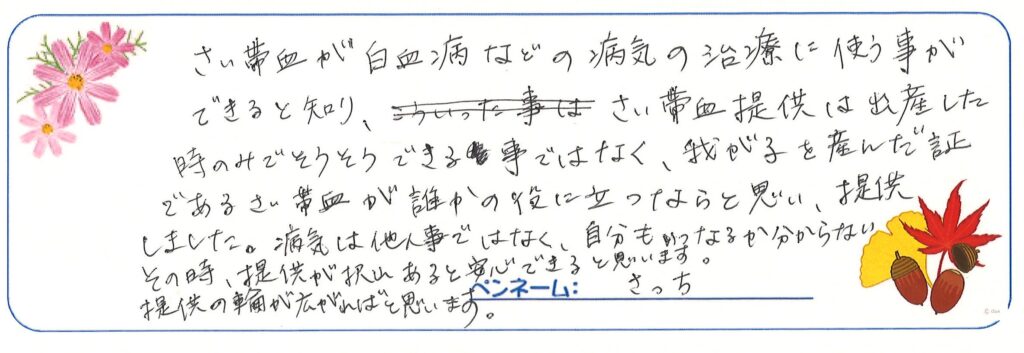 さい帯血が白血病などの病気の治療に使う事が
できると知り、こういった事は さい帯血提供は出産した
時のみでそうそうできる事ではなく、我が子を産んだ証
であるさい帯血が誰かの役に立つならと思い、提供
しました。病気は他人事ではなく、自分もいつなるか分からない
その時、提供が沢山あると安心できると思います。
提供の輪が広がればと思います。
ペンネーム: さっち